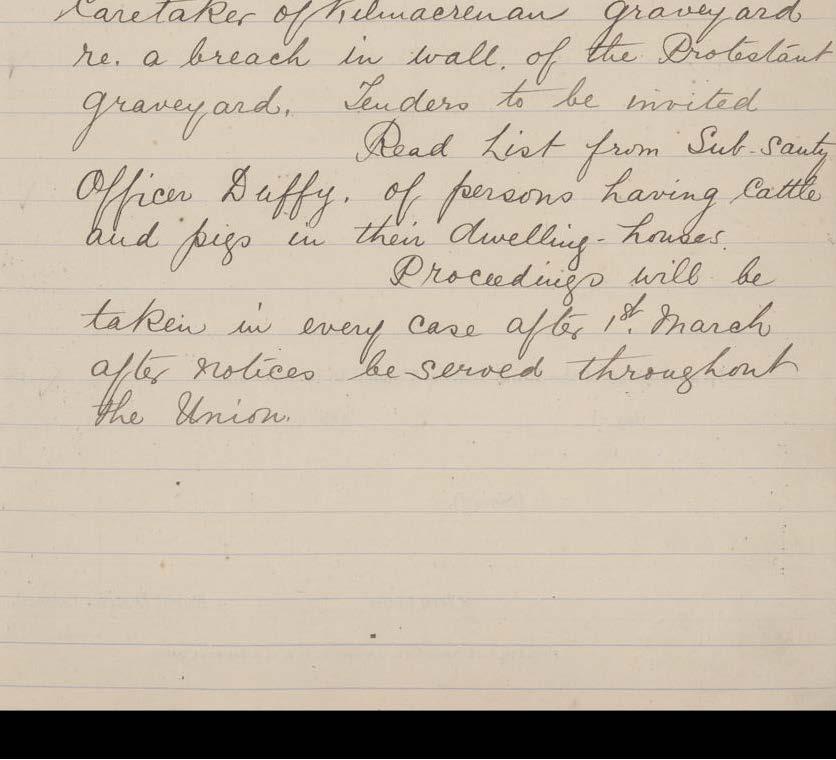 Caretaker of Kilmacrenan graveyard
re. a breach in wall. of the Protestant
graveyard. Tenders to be invited
Read List from Sub-Santy
Officer Duffy. of persons having Cattle
and pigs in their dwelling-houses.
Proceedings will be
taken in every case after 1st. March
after notices be served throughout
the Union.